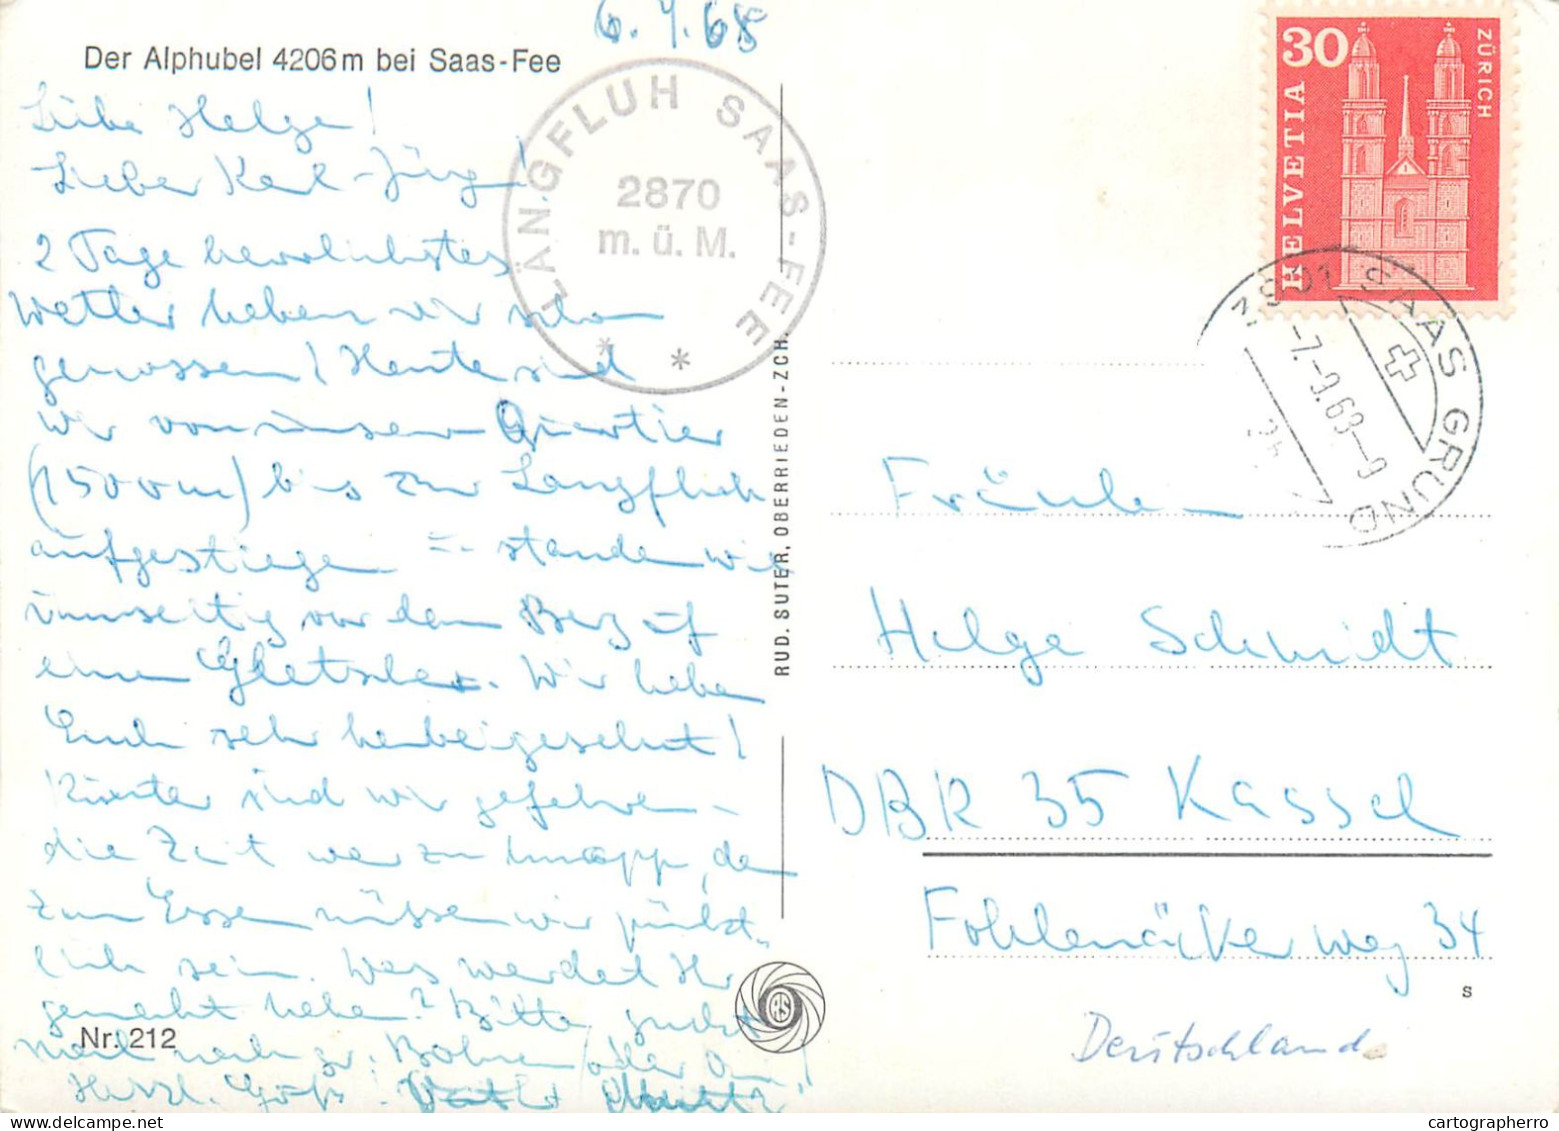 6.9.68
Der Alphubel 4206 m bei Saas-Fee
Liebe Helga!
Lieber Karl-Jürg!
2 Tage herrlichstes
Wetter haben wir schon
genossen! Heute sind
wir von unserem Quartier
(1500m) bis zur Langfluh
aufgestiegen - standen wir
umseitig vor dem Berg auf
einem Gletscher. Wir haben
Euch sehr herbeigesehnt!
sind wir gefahren -
die Zeit war zu knapp, da
zum Essen müssen wir pünkt-
lich sein. Was werdet Ihr
gemacht haben? Bitte, guckt
mal nach gr. Bohnen
Herzl. Grüße!
Nr. 212
LÄNGFLUH SAAS-FEE
2870
m. ü. M.
* *
RUD. SUTER, OBERRIEDEN-ZCH.
30
HELVETIA
ZÜRICH
3901 SAAS GRUND
-7.-9.68-9
Fräulein
Helga Schmidt
DBR 35 Kassel
Fohlenäckerweg 34
Deutschland
S
cartographerro